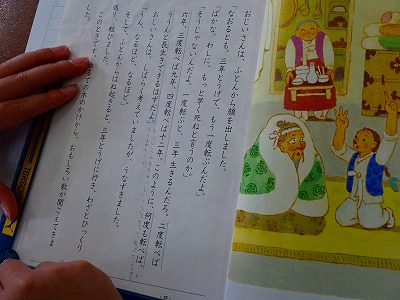 おじいさんは、ふとんから顔を出しました。
「なおるとも。三年とうげで、もう一度転ぶんだよ。」
「ばかな。わしに、もっと早く死ねと言うのか。」
「そうじゃないんだよ。一度転ぶと、三年生きるんだろ。二度転べば
六年、三度転べば九年、四度転べば十二年。このように、何度も転べば、
ううんと長生きできるはずだよ。」
おじいさんは、しばらく考えていましたが、うなずきました。
「うん、なるほど、なるほど。」
そして、ふとんからはね起きると、三年とうげに行き、わざとひっくり
返り、転びました。
このときです。ぬるでの木のかげから、おもしろい歌が聞こえてきま
した。